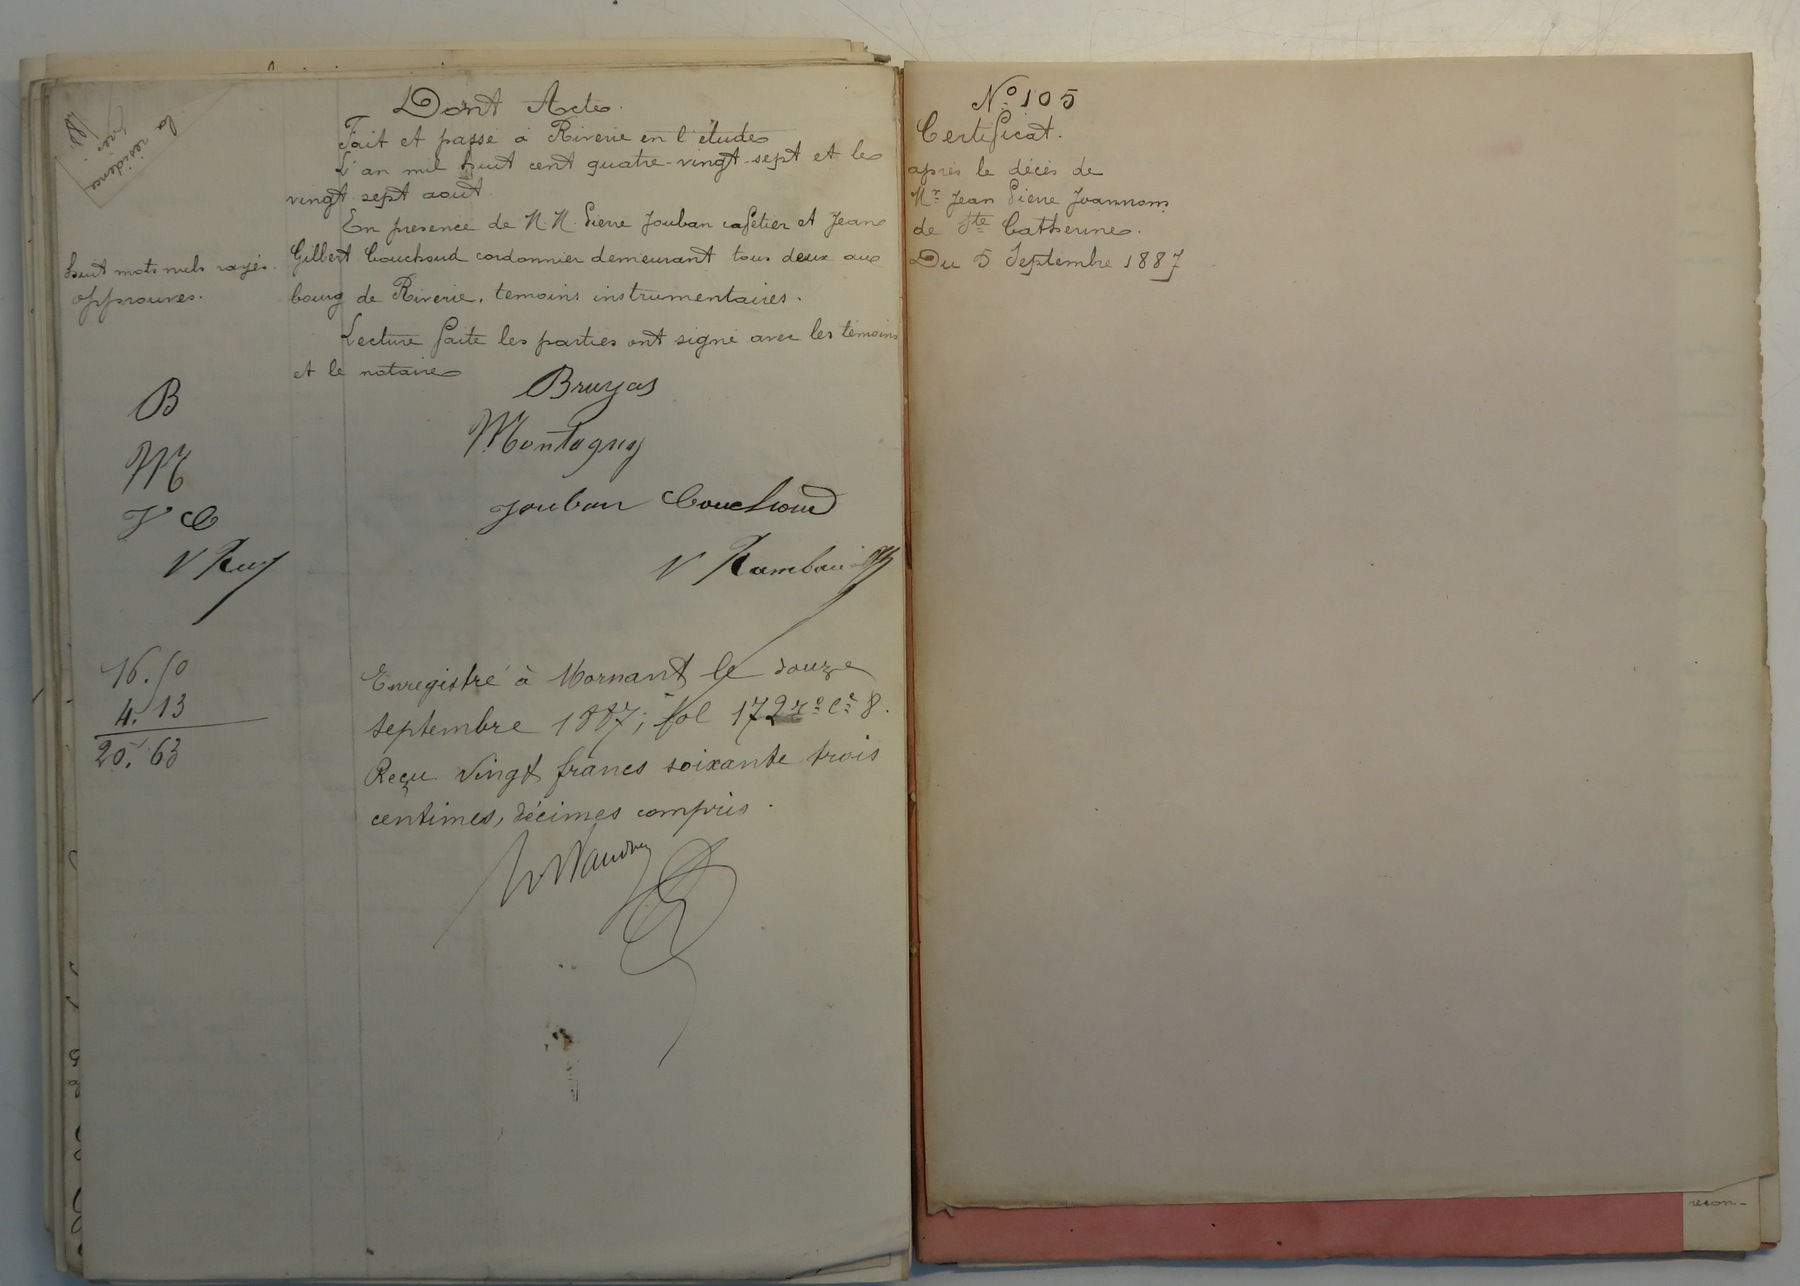 Dont Acte.
Fait et passé à Riverie en l'étude
L'an mil huit cent quatre-vingt-sept et le
vingt sept août
En présence de M.M. Pierre Jouban cafetier et Jean
Gilbert Couchoud cordonnier demeurant tous deux au
bourg de Riverie, témoins instrumentaires.
Lecture faite les parties ont signé avec les témoins
et le notaire
Bruyas
Montagny
Jouban Couchoud
V Rambaud
la résidence
huit mots nuls rayés
approuvés.
B
M
J C
16.50
4.13
20.63
Enregistré à Mornant le douze
septembre 1887; fol 172 ro ce 8.
Reçu vingt francs soixante trois
centimes, décimes compris.
No. 105
Certificat.
après le décès de
Mr Jean Pierre Joannon
de Ste Catherine.
Du 5 Septembre 1887
recon-